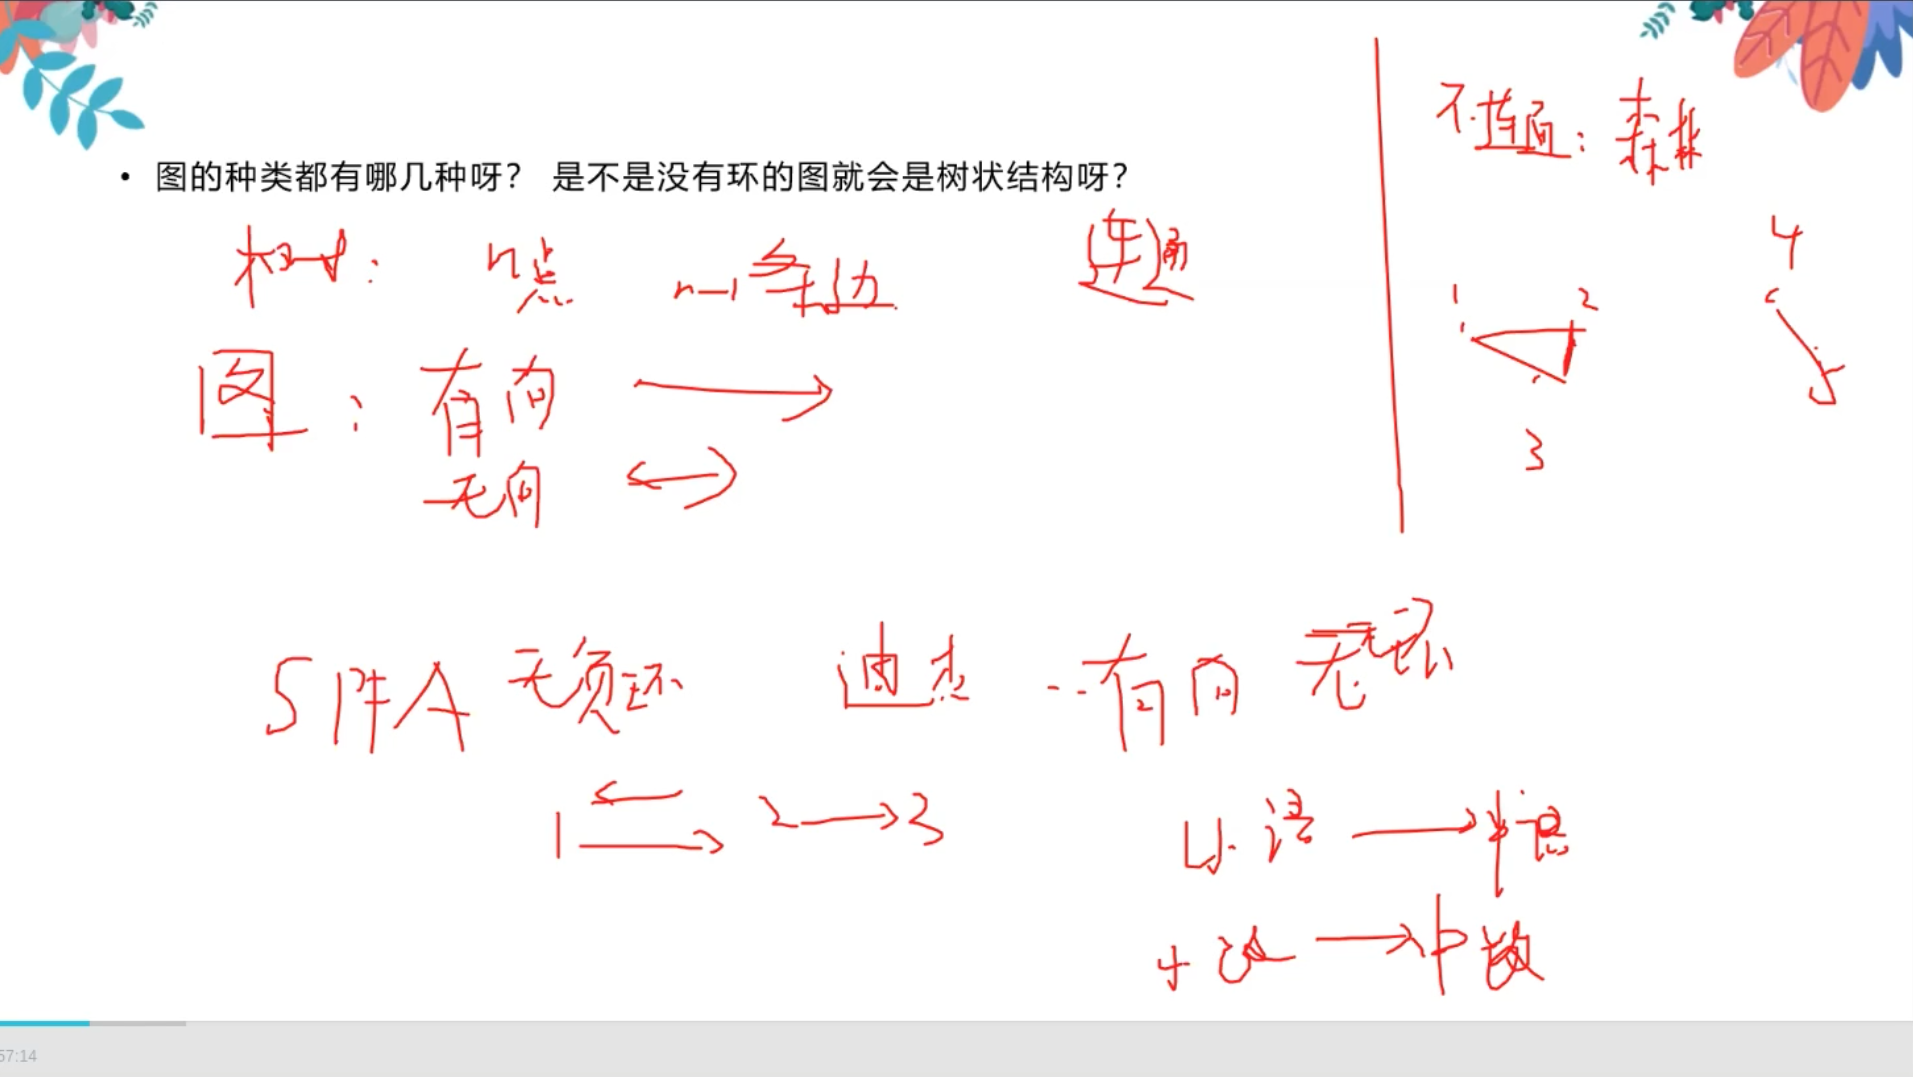 图的种类都有哪几种呀？ 是不是没有环的图就会是树状结构呀？
树： n点 n-1条边 连通
图： 有向
无向
不连通：森林
1 2 4
5
3
SPFA 无负环 迪杰 ..有向 无环
1 2 3